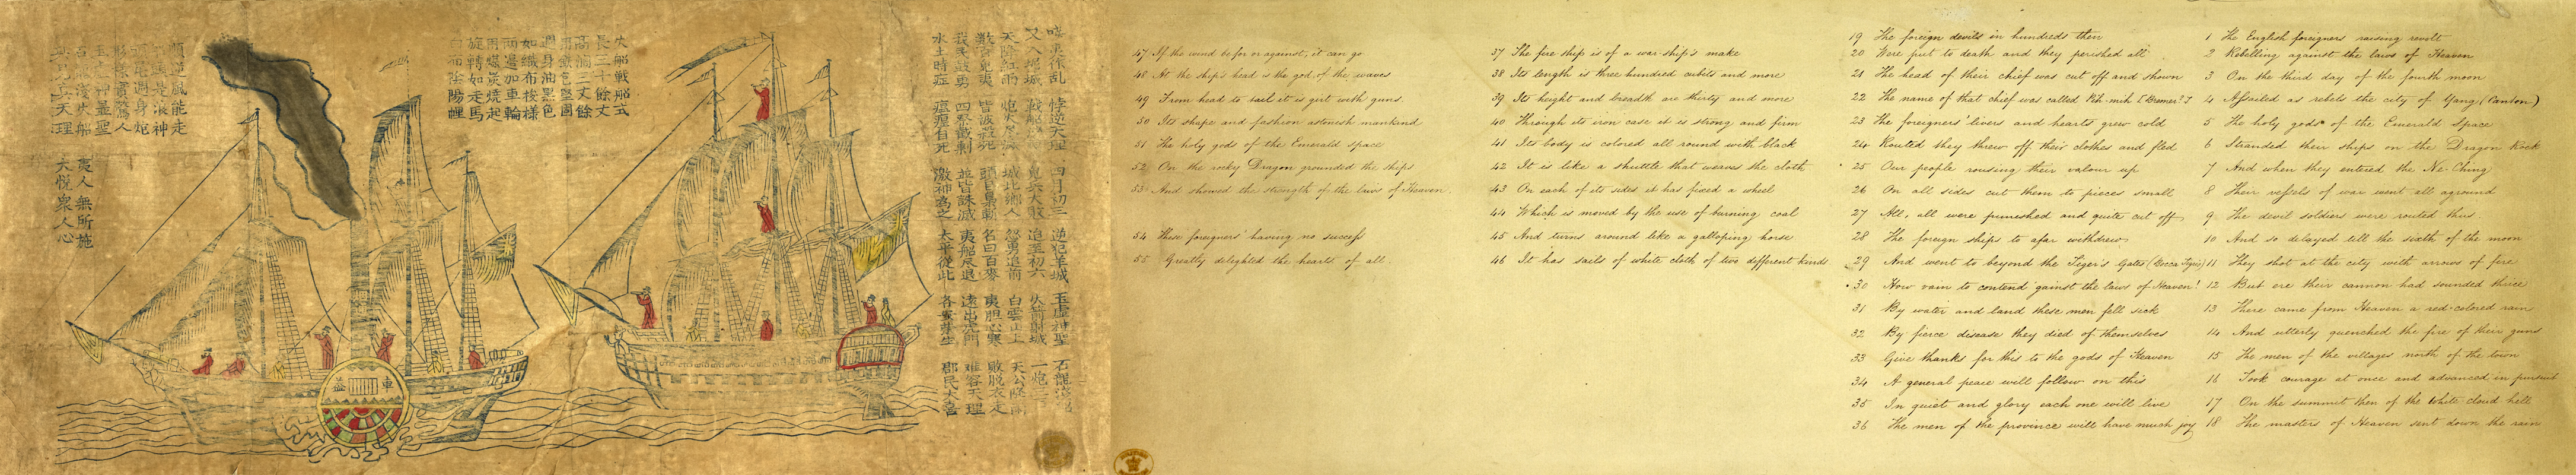 夷作乱 悖逆天理 四月初三 逆犯羊城 玉虛神聖 石龍
又入坭城 戰船 鬼兵大敗 迨至初六 火箭射城 一炮三
天降紅雨 炮火尽滅 城北鄉人 忽勇追前 白雲山上 天公降雨
数百鬼夷 皆被殺死 頭目梟斬 名曰百麥 夷胆心寒 敗脱衣走
我民鼓勇 四界截剿 並皆誅滅 夷船尽退 遠出虎門 难容天理
水土時症 瘟瘴自死 激神為之 太平從此 各安生 郡民大喜
火船戰船式
長三十餘丈
高濶三丈餘
用鐵包堅固
週身油黑色
如織布梭樣
两邊加車輪
用煤炭燒起
旋轉如走馬
白布陰陽
順逆風能走
頭是浪神
頭尾週身炮
形樣實驚人
玉虛神显聖
石龍浅火船
天理
夷人無所施
大悅衆人心
車
益
1 The English foreigners raising revolt
2 Rebelling against the laws of Heaven
3 On the third day of the fourth moon
4 Assailed as rebels the city of Yang (Canton)
5 The holy gods of the Emerald Space
6 Stranded their ships on the Dragon Rock
7 And when they entered the Ne Ching
8 Their vessels of war went all aground
9 The devil soldiers were routed thus.
10 And so delayed till the sixth of the moon
11 They shot at the city with arrows of fire
12 But ere their cannon had sounded thrice
13 There came from Heaven a red-colored rain
14 And utterly quenched the fire of their guns
15 The men of the villages north of the town
16 Took courage at once and advanced in pursuit
17 On the summit then of the White cloud hill
18 The masters of Heaven sent down the rain
19 The foreign devils in hundreds then
20 Were put to death and they perished all
21 The head of their chief was cut off and shown
22 The name of that chief was called Pih-mih [Bremer?]
23 The foreigners' livers and hearts grew cold
24 Routed they threw off their clothes and fled
25 Our people rousing their valour up
26 On all sides cut them to pieces small
27 All, all were punished and quite cut off
28 The foreign ships to afar withdrew
29 And went to beyond the Tiger's Gates (Bocca Tigris)
30 How vain to contend gainst the laws of Heaven!
31 By water and land these men fell sick
32 By fierce disease they died of themselves
33 Give thanks for this to the gods of Heaven
34 A general peace will follow on this
35 In quiet and glory each one will live
36 The men of the province will have much joy
37 The fire ship is of a war-ship's make
38 Its length is three hundred cubits and more
39 Its height and breadth are thirty and more
40 Through its iron case it is strong and firm
41 Its body is colored all round with black
42 It is like a shuttle that weaves the cloth
43 On each of its sides it has fixed a wheel
44 Which is moved by the use of burning coal
45 And turns around like a galloping horse
46 It has sails of white cloth of two different kinds
47 If the wind be for or against, it can go
48 At the ship's head is the god of the waves
49 From head to tail it is girt with guns
50 Its shape and fashion astonish mankind
51 The holy gods of the Emerald space
52 On the rocky Dragon grounded the ships
53 And showed the strength of the laws of Heaven.
54 These foreigners having no success
55 Greatly delighted the hearts of all.